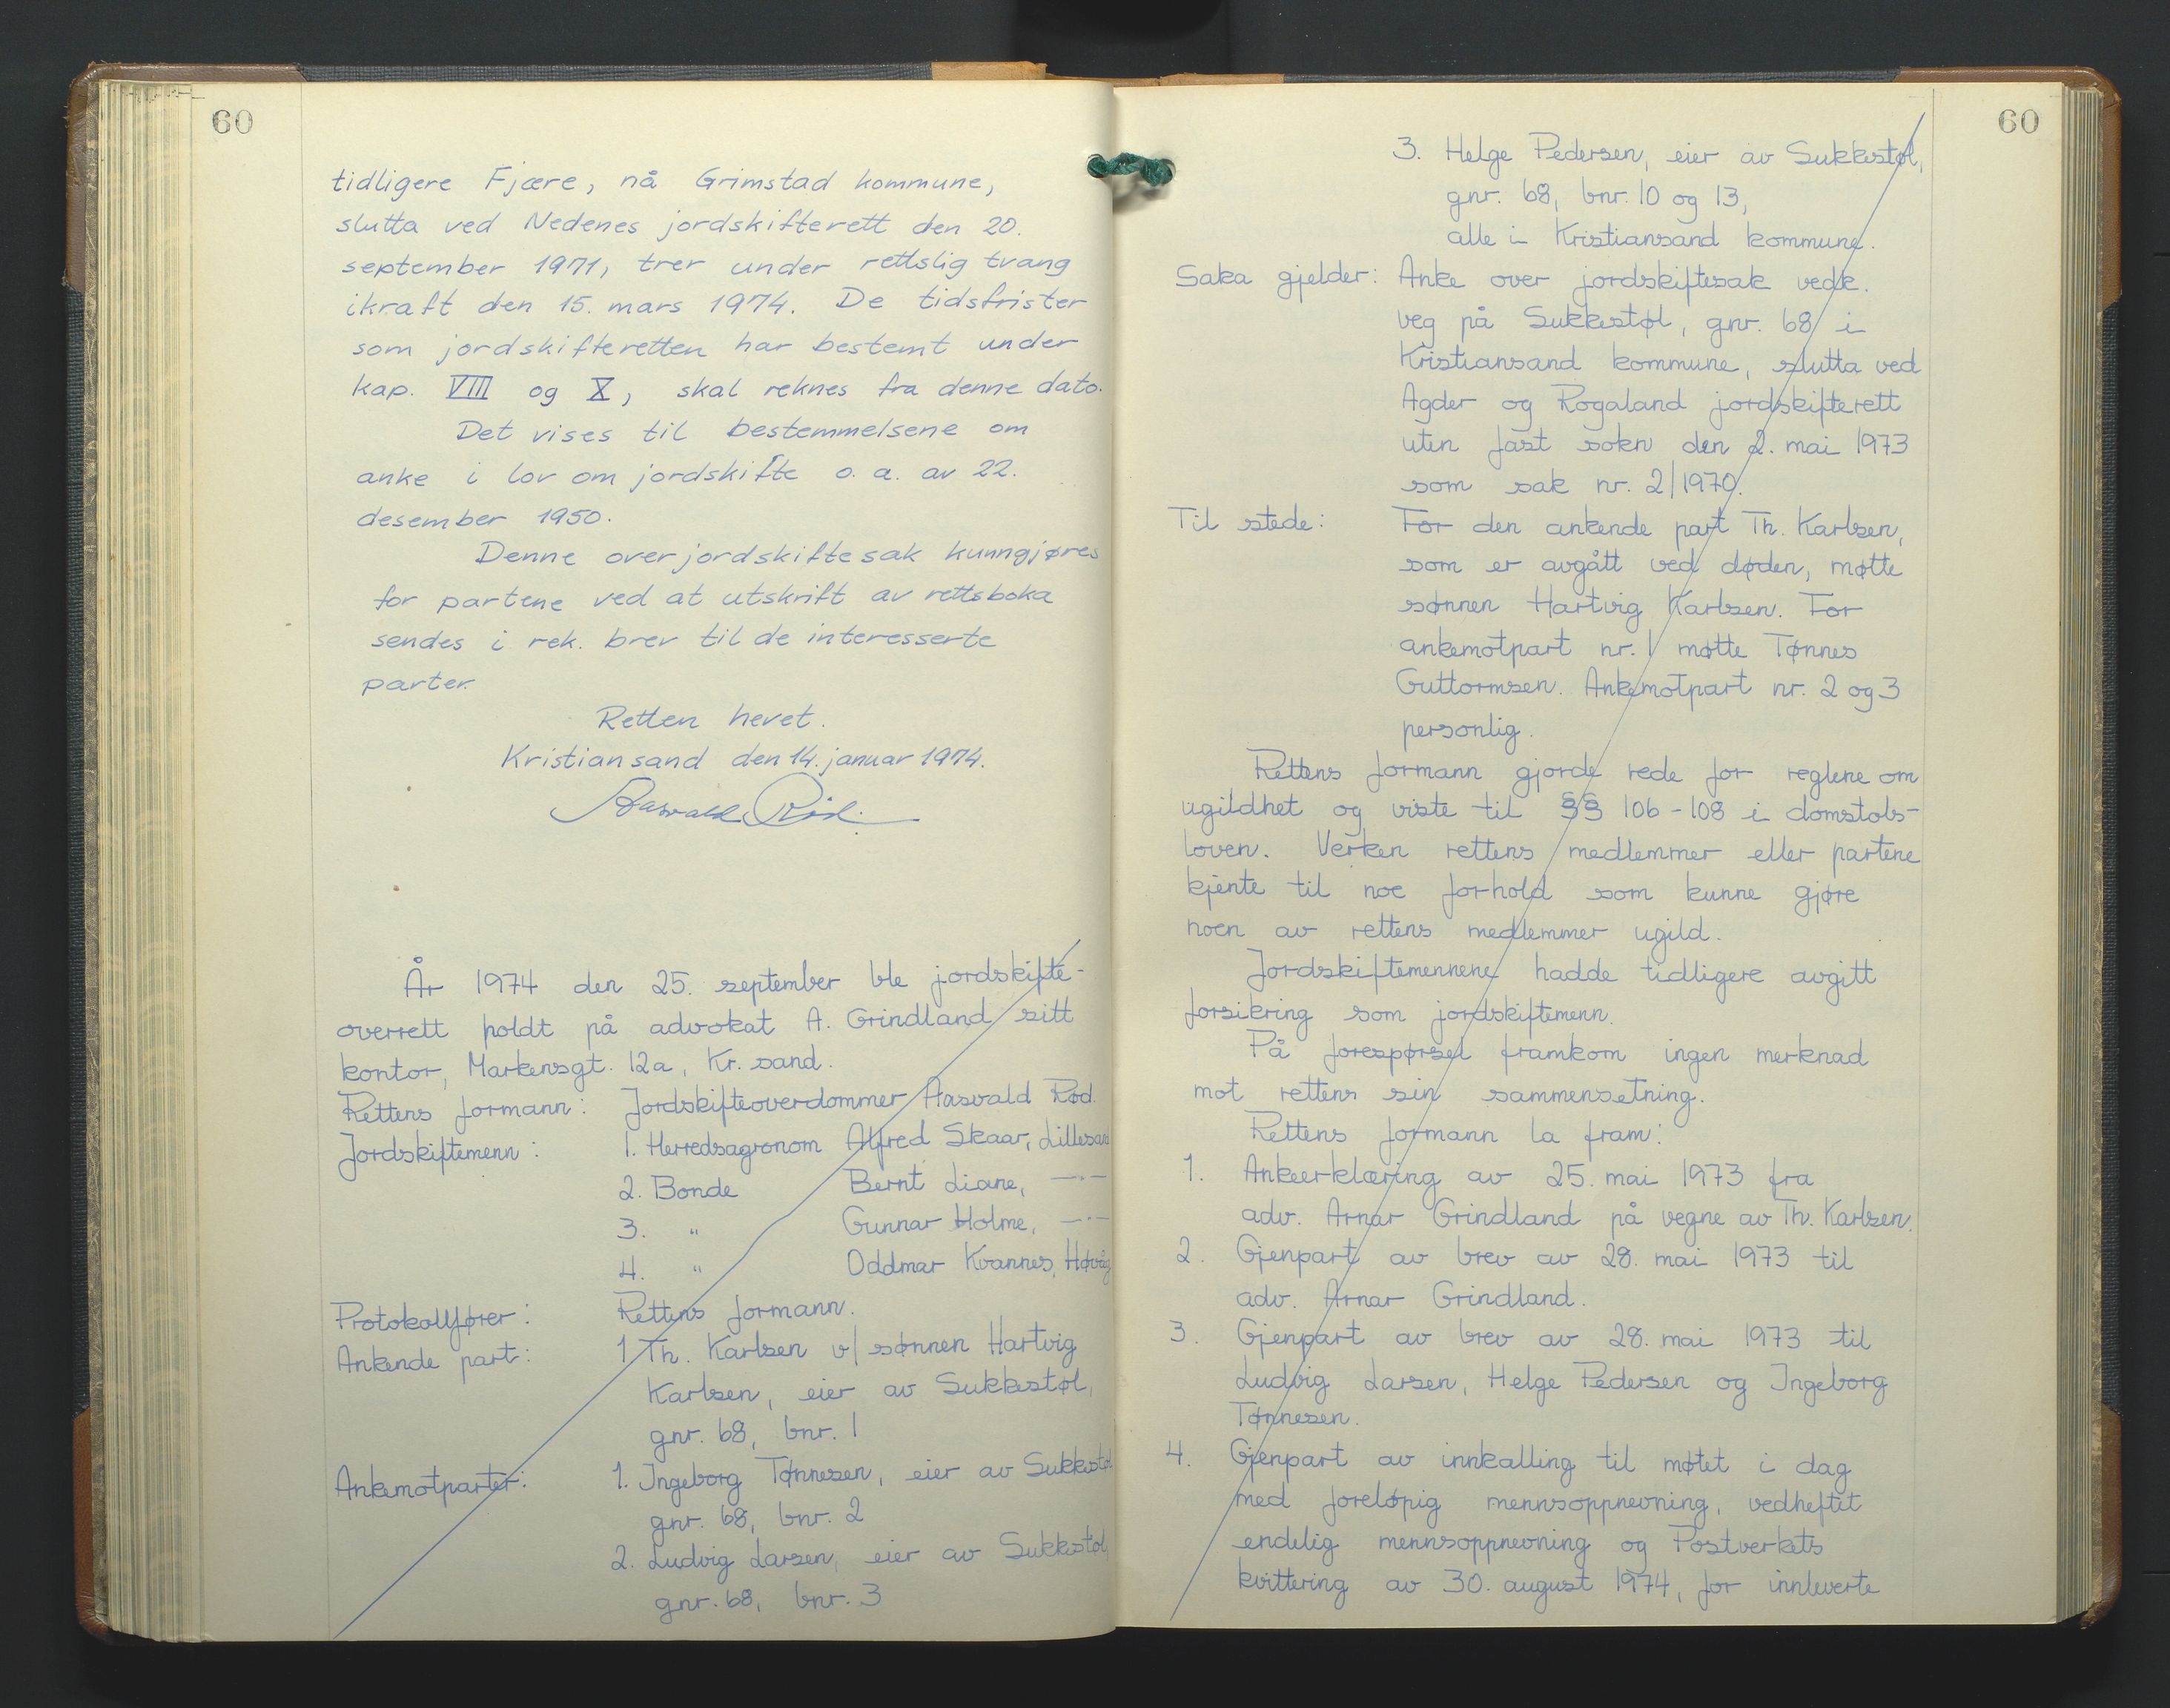 60
tidligere Fjære, nå Grimstad kommune,
slutta ved Nedenes jordskifterett den 20.
september 1971, trer under rettslig tvang
ikraft den 15. mars 1974. De tidsfrister
som jordskifteretten har bestemt under
kap. VIII og X, skal reknes fra denne dato.
Det vises til bestemmelsene om
anke i lov om jordskifte o. a. av 22.
desember 1950.
Denne overjordskiftesak kunngjøres
for partene ved at utskrift av rettsboka
sendes i rek. brev til de interesserte
parter.
Retten hevet.
Kristiansand den 14. januar 1974.
Aasvald Rød.
År 1974 den 25. september ble jordskifte-
overrett holdt på advokat A. Grindland sitt
kontor, Markensgt. 12a, Kr. sand.
Rettens formann: Jordskifteoverdommer Aasvald Rød.
Jordskiftemenn: 1. Herredsagronom Alfred Skaar, Lillesand
2. Bonde Bernt Liane, —"—
3. " Gunnar Holme, —"—
4. " Oddmar Kvannes, Høvåg
Protokollfører: Rettens formann.
Ankende part: 1 Th. Karlsen v/ sønnen Hartvig
Karlsen, eier av Sukkestøl,
gnr. 68, bnr. 1
Ankemotparter: 1. Ingeborg Tønnesen, eier av Sukkestøl
gnr. 68, bnr. 2
2. Ludvig Larsen, eier av Sukkestøl,
gnr. 68, bnr. 3
60
3. Helge Pedersen, eier av Sukkestøl,
gnr. 68, bnr. 10 og 13,
alle i Kristiansand kommune.
Saka gjelder: Anke over jordskiftesak vedk.
veg på Sukkestøl, gnr. 68 i
Kristiansand kommune, slutta ved
Agder og Rogaland jordskifterett
uten fast sokn den 2. mai 1973
som sak nr. 2/1970.
Til stede: For den ankende part Th. Karlsen,
som er avgått ved døden, møtte
sønnen Hartvig Karlsen. For
ankemotpart nr. 1 møtte Tønnes
Guttormsen. Ankemotpart nr. 2 og 3
personlig.
Rettens formann gjorde rede for reglene om
ugildhet og viste til §§ 106-108 i domstols-
loven. Verken rettens medlemmer eller partene
kjente til noe forhold som kunne gjøre
noen av rettens medlemmer ugild.
Jordskiftemennene hadde tidligere avgitt
forsikring som jordskiftemenn.
På forespørsel framkom ingen merknad
mot rettens sin sammensetning.
Rettens formann la fram:
1. Ankeerklæring av 25. mai 1973 fra
adv. Arnar Grindland på vegne av Th. Karlsen.
2. Gjenpart av brev av 28. mai 1973 til
adv. Arnar Grindland.
3. Gjenpart av brev av 28. mai 1973 til
Ludvig Larsen, Helge Pedersen og Ingeborg
Tønnesen.
4. Gjenpart av innkalling til møtet i dag
med foreløpig mennsoppnevning, vedheftet
endelig mennsoppnevning og Postverkets
kvittering av 30. august 1974, for innleverte